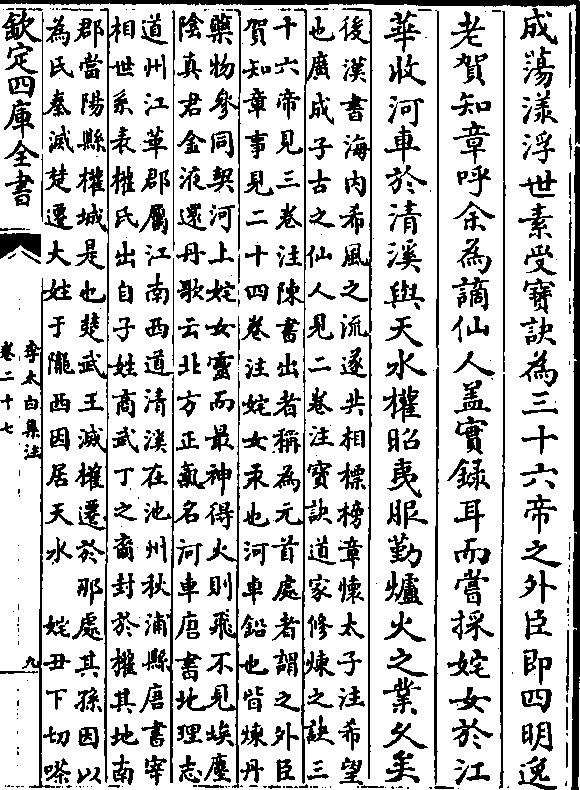 成蕩漾浮世素受寳訣為三十六帝之外臣即四明逸
老賀知章呼余為謫仙人盖實録耳而嘗採姹女於江
華收河車於清溪與天水權昭夷服勤爐火之業久矣
後漢書海内希風之流遂共相標榜章懐太子注希望
也廣成子古之仙人見二卷注寳訣道家修煉之訣三
十六帝見三卷注陳書出者稱為元首處者謂之外臣
賀知章事見二十四卷注姹女汞也河車鉛也皆煉丹
藥物參同契河上姹女靈而最神得火則飛不見埃塵
陰真君金液還丹歌云北方正氣名河車唐書地理志
道州江華郡屬江南西道清溪在池州秋浦縣唐書宰
相世系表權氏出自子姓商武丁之裔封於權其地南
郡當陽縣權城是也楚武王滅權遷於那處其孫因以
為氏秦滅楚遷大姓于隴西因居天水 姹丑下切嗏
欽定四庫全書
李太白集注
卷二十七
九